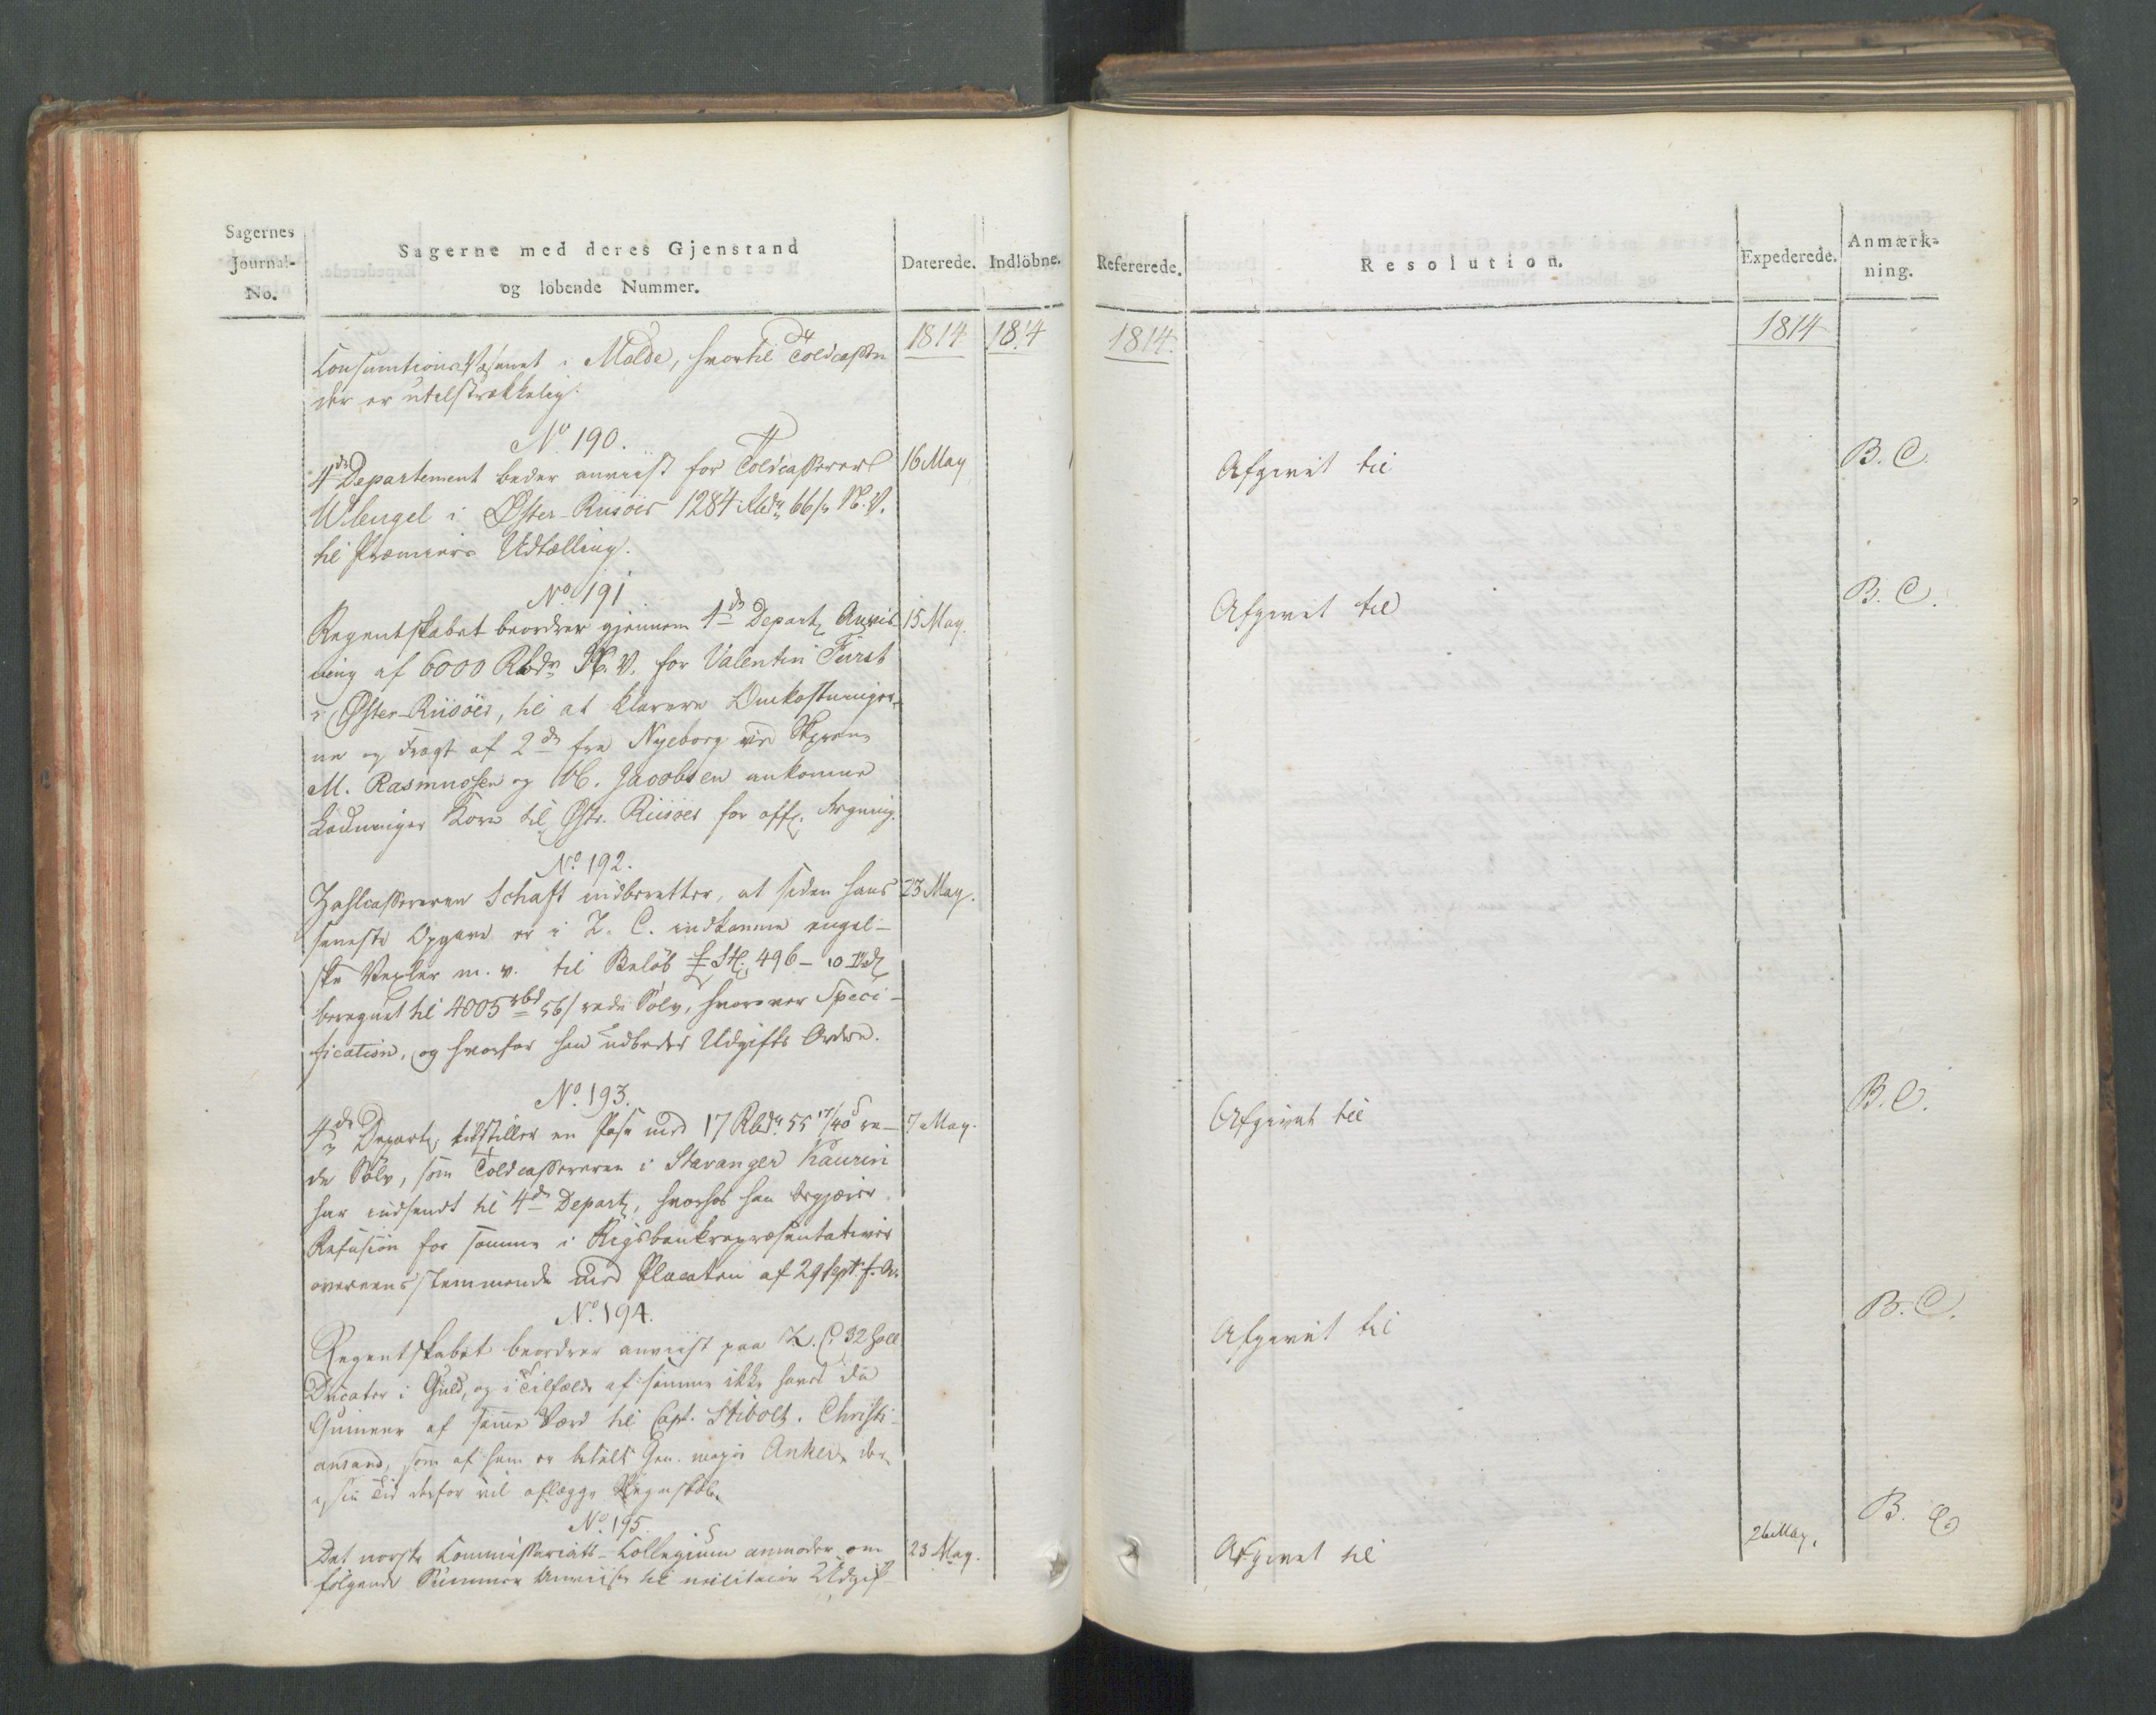 Sagernes
Journal-
No.
Sagerne med deres Gjenstand
og löbende Nummer.
Daterede.
Indlöbne.
1814
1814
Consumtions Væsenet i Molde, hvortil Toldcassen
der er utilstrækkelig.
No 190.
4de Departement beder anviist for Toldcasserer
Wlengel i Øster-Riisöer 1284 Rbdr 66 s N. V.
til Præmiers Udtælling.
16 May
No 191
Regentskabet beordrer gjennem 4de Depart Anvis-
ning af 6000 Rbdr N. V. for Valentin Fürst
i Øster-Riisöer, til at klarere Omkostninger-
ne og Fragt af 2de fra Nyeborg ved Skprene
M. Rasmussen og Jacobsen ankomne
Ladninger Korn til Østr. Riisöer for off. Regning.
15 May.
No 192.
Zahlcassereren Schaft indberetter, at siden hans
seneste Opgave er i Z. C. indkomne engel-
ske Vexler m. v. til Beløb £ St. 496 - 10
beregnet til 4005 rbd 56 s rede Sölv, hvorover Speci-
fication, og hvorfor han udbeder Udgifts Ordre.
23 May.
No. 193.
4de Depart tilstiller en Pose med 17 Rbdr. 55 17/40 s re-
de Sölv, som Toldcassereren i Stavanger Kaurin
har indsendt til 4de Depart, hvorhos han begjærer
Refusion for samme i Rigsbankrepræsentativer
overeensstemmende med Placaten af 29 Septr f. A.
7 May.
No. 194.
Regentskabet beordrer anviist paa Z. C. 32 holl
Ducater i Guld, og i Tilfælde af samme ikke haves da
Guineer af samme Værd til Capt. Stibolt. Christi-
ansand, som af ham er betalt Gen. major Anker, der
i sin Tid derfor vil aflægge Regnskab.
No. 195.
Det norske Commissariats-Collegium anmoder om
følgende Summer Anviiste til militaire Udgif-
23 May.
Refererede.
Resolution.
Expederede.
Anmærk-
ning.
1814.
1814
Afgivet til
B. C.
Afgivet til
B. C.
Afgivet til
B. C.
Afgivet til
B. C.
Afgivet til
26 May.
B. C.